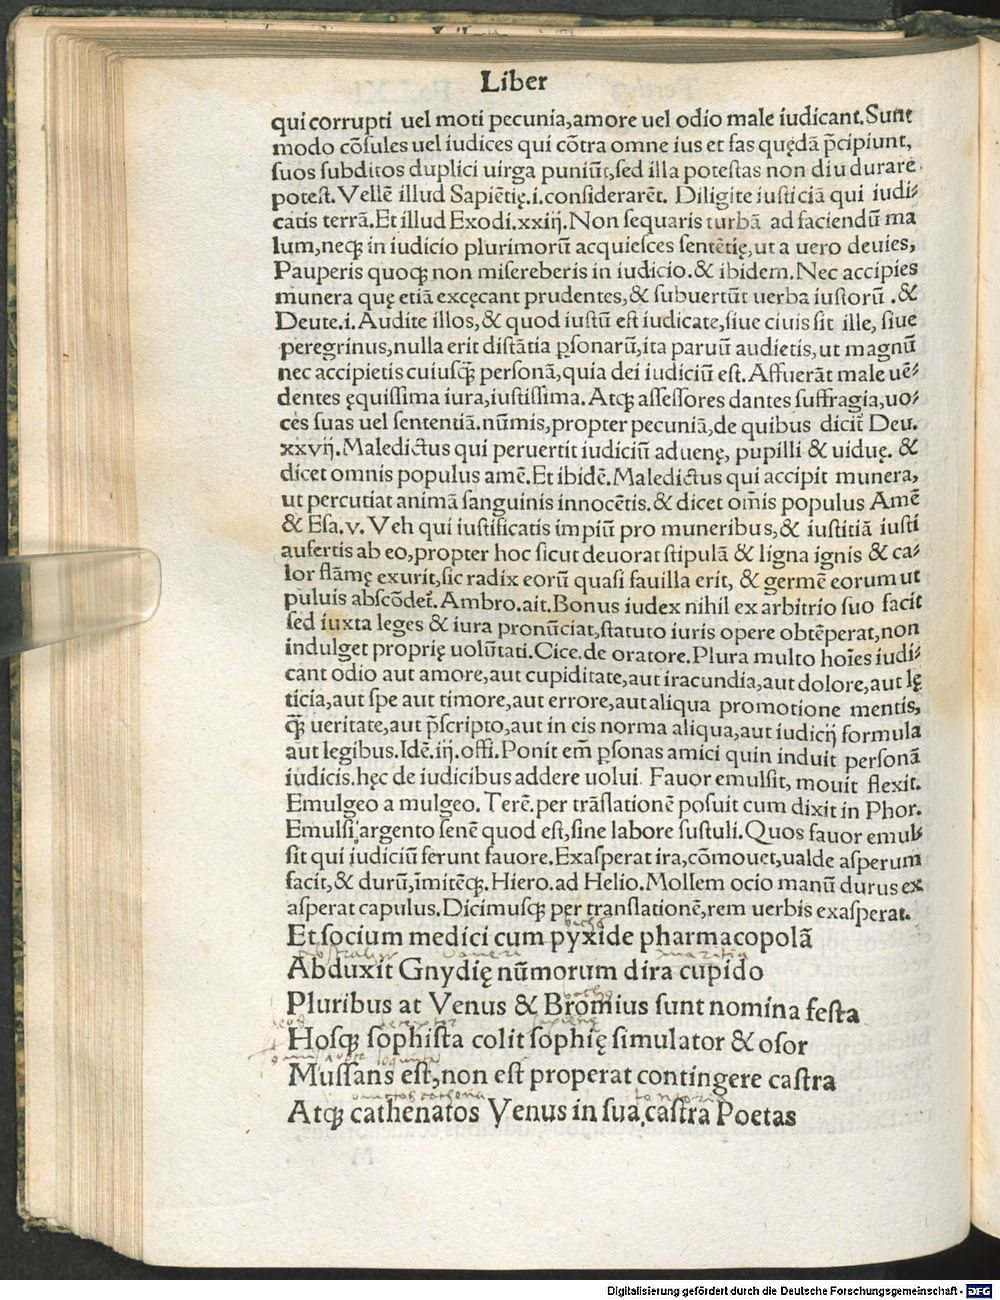 Liber
qui corrupti uel moti pecunia,amore uel odio male iudicant.Sunt
modo cõsules uel iudices qui cõtra omne ius et fas quędã p̃cipiunt,
suos subditos duplici uirga puniũt,sed illa potestas non diu durare
potest.Vellẽ illud Sapiẽtię.i.considerarẽt. Diligite iusticiã qui iudi⸗
catis terrã.Et illud Exodi.xxiij.Non sequaris turbã ad faciendũ ma
lum,neqꝫ in iudicio plurimorũ acquiesces sentẽtię,ut a uero deuies,
Pauperis quoqꝫ non misereberis in iudicio.& ibidem.Nec accipies
munera quę etiã excęcant prudentes,& subuertũt uerba iustorũ .&
Deute.i.Audite illos,& quod iustũ est iudicate,siue ciuis sit ille, siue
peregrinus,nulla erit distãtia ꝑsonarũ,ita paruũ audietis,ut magnũ
nec accipietis cuiusqꝫ personã,quia dei iudiciũ est.Affuerãt male uẽ⸗
dentes ęquissima iura,iustissima.Atqꝫ assessores dantes suffragia,uo⸗
ces suas uel sententiã.nũmis,propter pecuniã,de quibus dicit̃ Deu.
xxvij.Maledictus qui peruertit iudiciũ aduenę, pupilli & uiduę. &
dicet omnis populus amẽ.Et ibidẽ.Maledictus qui accipit munera,
ut percutiat animã sanguinis innocẽtis.& dicet om̃is populus Amẽ
& Esa.v.Veh qui iustificatis impiũ pro muneribus,& iustitiã iusti
aufertis ab eo,propter hoc sicut deuorat stipulã & ligna ignis & ca⸗
lor flãmę exurit,sic radix eorũ quasi fauilla erit, & germẽ eorum ut
puluis abscõdet̃.Ambro.ait.Bonus iudex nihil ex arbitrio suo facit
sed iuxta leges & iura pronũciat,statuto iuris opere obtẽperat,non
indulget proprię uolũtati.Cice.de oratore.Plura multo hoĩes iudi⸗
cant odio aut amore,aut cupiditate,aut iracundia,aut dolore,aut lę
ticia,aut spe aut timore,aut errore,aut aliqua promotione mentis,
q̃ꝫ ueritate,aut p̃scripto,aut in eis norma aliqua,aut iudicij formula
aut legibus.Idẽ.iij.offi.Ponit em̃ ꝑsonas amici quin induit personã
iudicis.hęc de iudicibus addere uolui. Fauor emulsit, mouit flexit.
Emulgeo a mulgeo. Terẽ.per trãslationẽ posuit cum dixit in Phor.
Emulsi argento senẽ quod est,sine labore sustuli.Quos fauor emul⸗
sit qui iudiciũ ferunt fauore.Exasperat ira,cõmouet,ualde asperum
facit,& durũ,ĩmitẽqꝫ.Hiero.ad Helio.Mollem ocio manũ durus ex
asperat capulus.Dicimusqꝫ per translationẽ,rem uerbis exasperat.
Et socium medici cum pyxide pharmacopolã
Abduxit Gnydię nũmorum dira cupido
Pluribus at Venus & Bromius sunt nomina festa
Hosqꝫ sophista colit sophię simulator & osor
Mussans est,non est properat contingere castra
Atqꝫ cathenatos Venus in sua,castra Poetas
Digitalisierung gefördert durch die Deutsche Forschungsgemeinschaft - DFG